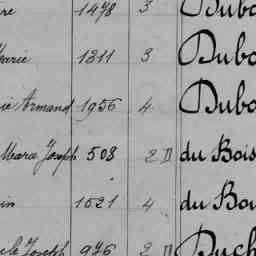 re 1478 3 Dubo
Marie 1311 3 Dubo
ie Armand 1956 4 Dubo
Marie Joseph 508 2 D du Bois
in 1621 4 du Bou
ele Joseph 976 2 D Duch